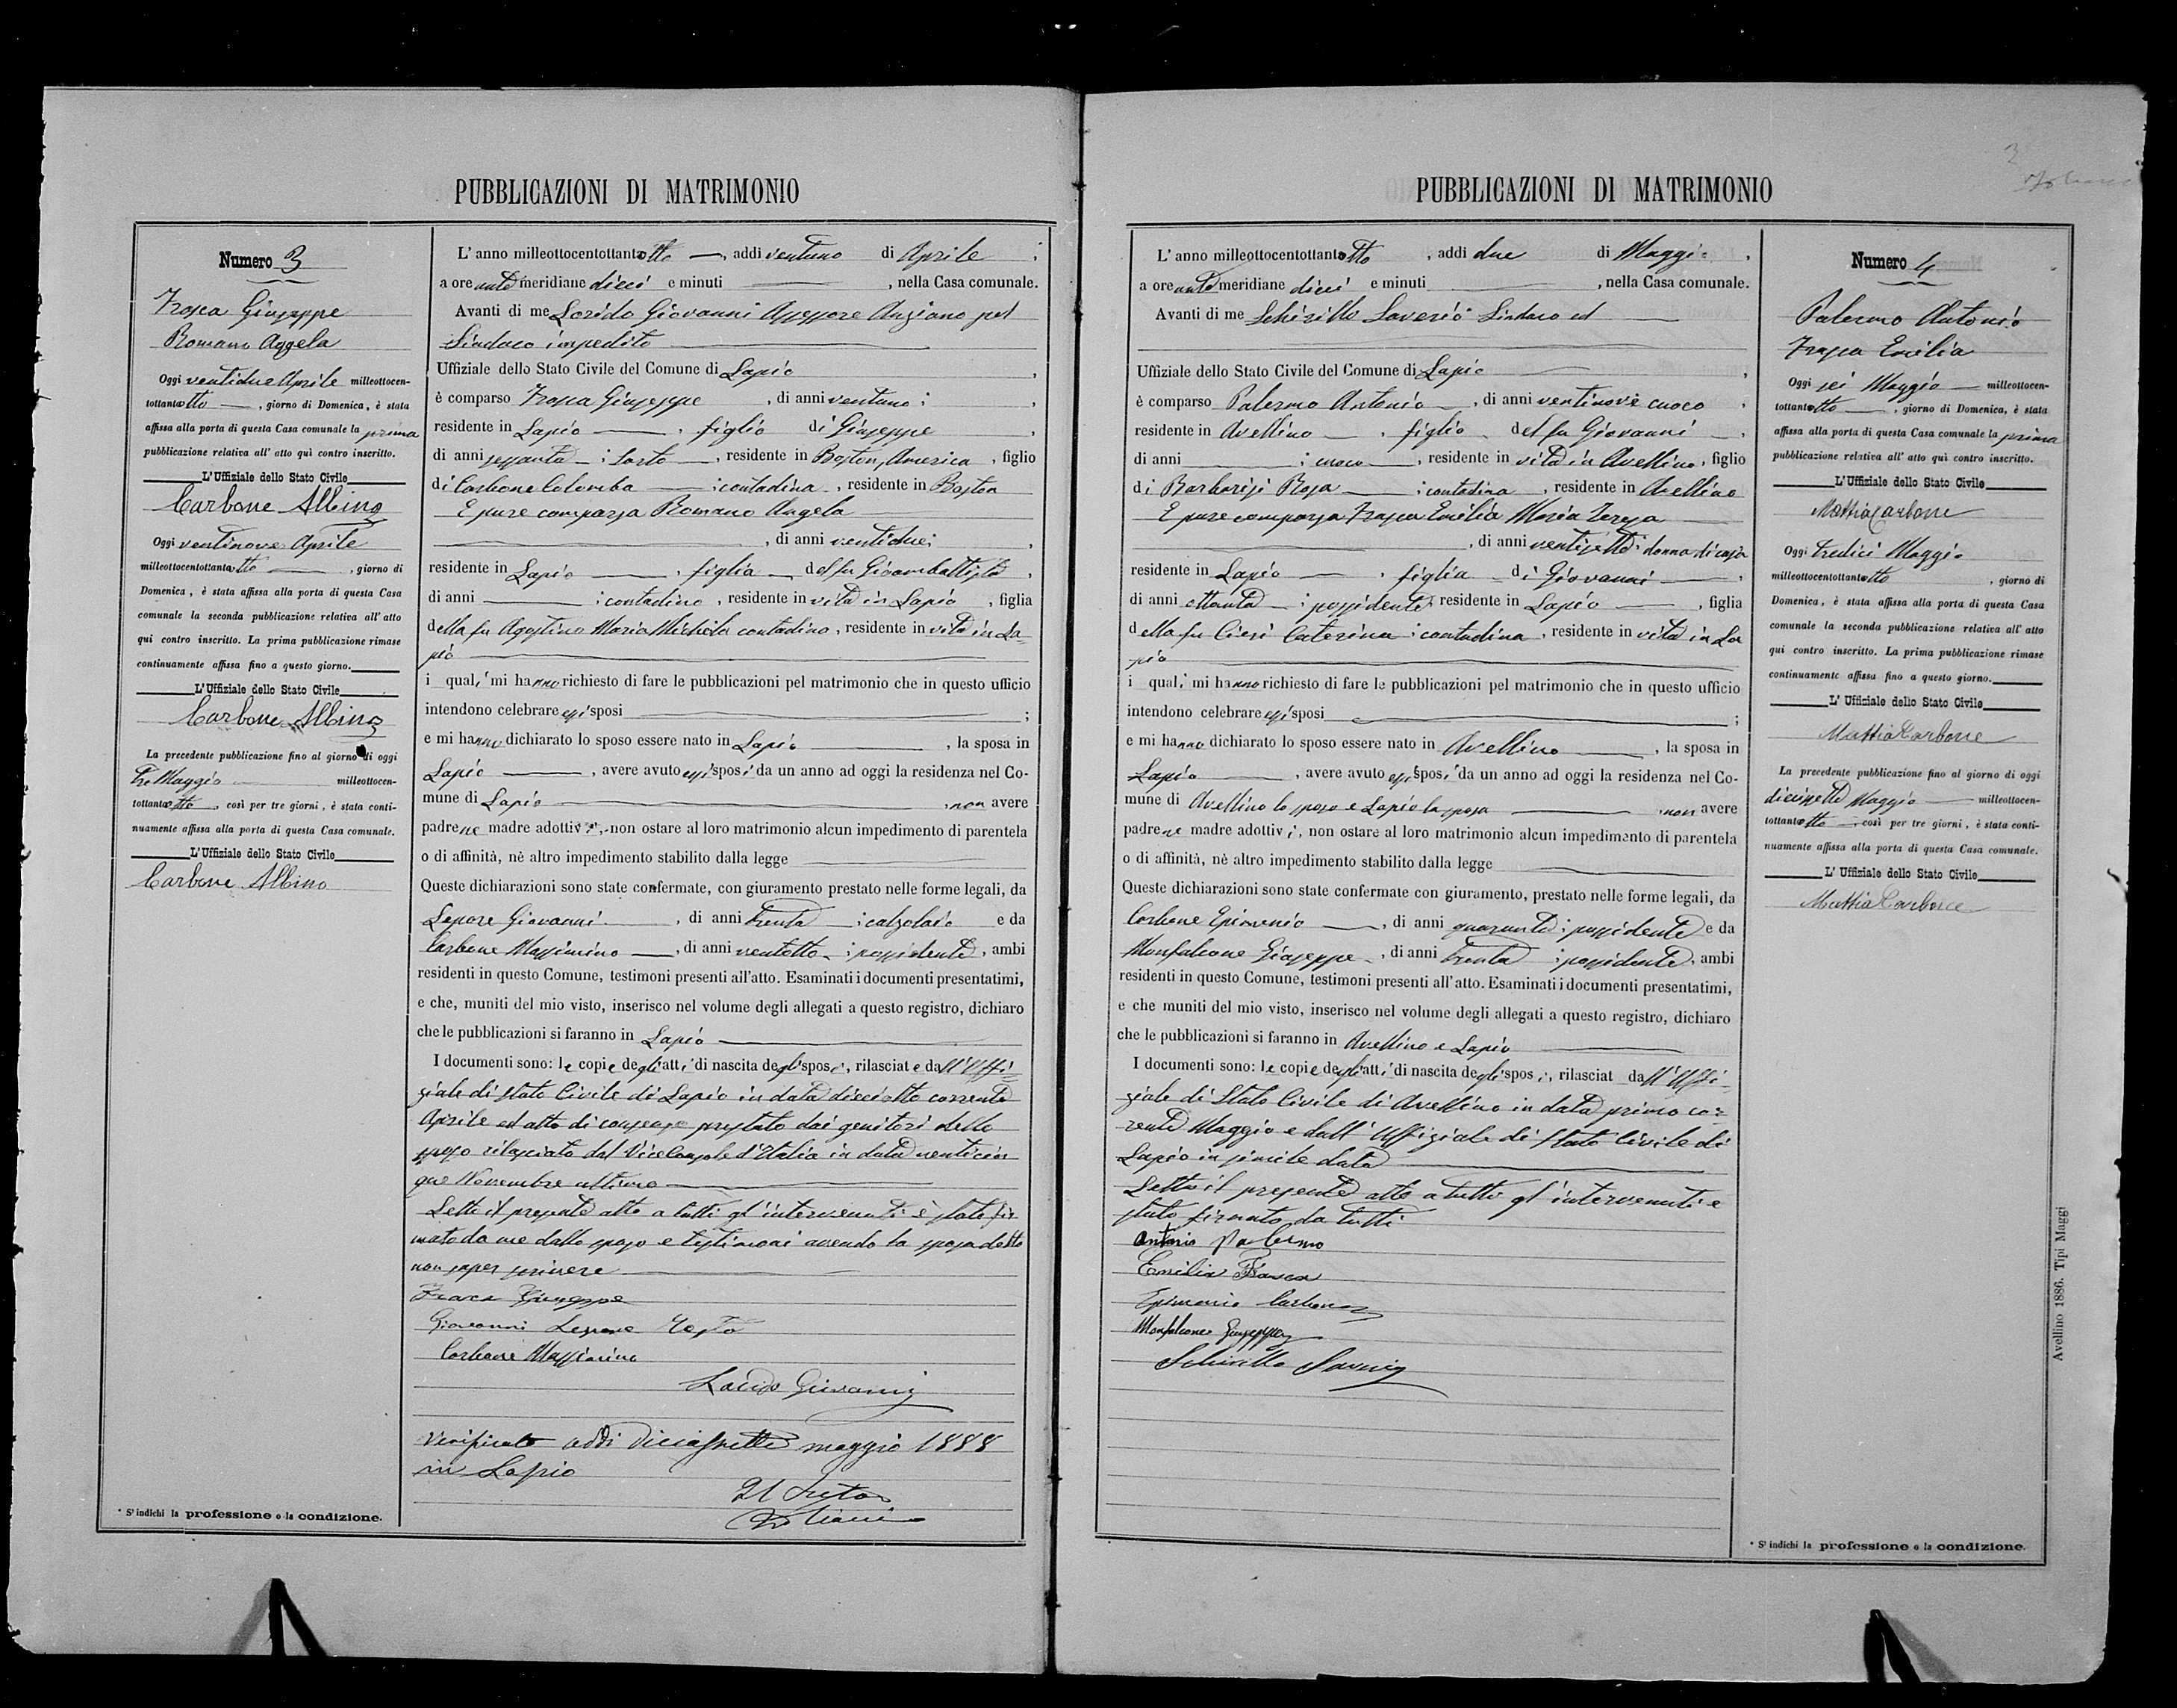 PUBBLICAZIONI DI MATRIMONIO
Numero 3
Frasca Giuseppe
Romano Angela
Oggi ventidue Aprile milleottocen-
tottantotto, giorno di Domenica, è stata
affissa alla porta di questa Casa comunale la prima
pubblicazione relativa all' atto quì contro inscritto.
L'Uffiziale dello Stato Civile
Carbone Albino
Oggi ventinove Aprile
milleottocentottantotto, giorno di
Domenica, è stata affissa alla porta di questa Casa
comunale la seconda pubblicazione relativa all' atto
qui contro inscritto. La prima pubblicazione rimase
continuamente affissa fino a questo giorno.
L'Uffiziale dello Stato Civile
Carbone Albino
La precedente pubblicazione fino al giorno di oggi
tre Maggio milleottocen-
tottantotto, così per tre giorni, è stata conti-
nuamente affissa alla porta di questa Casa comunale.
L'Uffiziale dello Stato Civile
Carbone Albino
* S' indichi la professione o la condizione.
L' anno milleottocentottantotto, addi ventuno di Aprile,
a ore antemeridiane dieci e minuti, nella Casa comunale.
Avanti di me Giovanni Assessore Anziano pel
Sindaco impedito
Uffiziale dello Stato Civile del Comune di Lapio,
è comparso Frasca Giuseppe, di anni ventuno;
residente in Lapio, figlio di Giuseppe,
di anni sessanta; Sarto, residente in Boston, America, figlio
di Carbone Colomba; contadina, residente in Boston
E pure comparsa Romano Angela
, di anni ventidue;
residente in Lapio, figlia del fu Giovambattista,
di anni; contadino, residente in vita in Lapio, figlia
della fu Agostino Maria Michela contadina, residente in vita in La-
pio
i quali mi hanno richiesto di fare le pubblicazioni pel matrimonio che in questo ufficio
intendono celebrare essi sposi;
e mi hanno dichiarato lo sposo essere nato in Lapio, la sposa in
Lapio, avere avuto essi sposi da un anno ad oggi la residenza nel Co-
mune di Lapio, non avere
padre ne madre adottivi, non ostare al loro matrimonio alcun impedimento di parentela
o di affinità, nè altro impedimento stabilito dalla legge
Queste dichiarazioni sono state confermate, con giuramento prestato nelle forme legali, da
Lepore Giovanni, di anni trenta; calzolaio e da
Carbone Massimino, di anni ventotto; possidente, ambi
residenti in questo Comune, testimoni presenti all'atto. Esaminati i documenti presentatimi,
e che, muniti del mio visto, inserisco nel volume degli allegati a questo registro, dichiaro
che le pubblicazioni si faranno in Lapio
I documenti sono: le copie degli atti di nascita degli sposi, rilasciate dall'Uffi-
ziale di Stato Civile di Lapio in data dieciotto corrente
Aprile ed atto di consenso prestato dai genitori dello
sposo rilasciato dal Vice Console d'Italia in data venticin
que Novembre ultimo
Letto il presente atto a tutti gl'intervenuti è stato fir
mato da me dallo sposo e testimoni avendo la sposa detto
non saper scrivere
Frasca Giuseppe
Giovanni Lepore
Carbone Massimino
Giovanni
Verificato addi diciassette maggio 1888
in Lapio
Il Pretore
PUBBLICAZIONI DI MATRIMONIO
L' anno milleottocentottantotto, addi due di Maggio,
a ore antemeridiane dieci e minuti, nella Casa comunale.
Avanti di me Schirillo Saverio Sindaco ed
Uffiziale dello Stato Civile del Comune di Lapio,
è comparso Palermo Antonio, di anni ventinove cuoco,
residente in Avellino, figlio del fu Giovanni,
di anni; cuoco, residente in vita in Avellino, figlio
di Barbarisi Rosa; contadina, residente in Avellino
E pure comparsa Frasca Emilia Maria Teresa
, di anni ventisette; donna di casa
residente in Lapio, figlia di Giovanni,
di anni ottanta; possidente, residente in Lapio, figlia
della fu Cieri Caterina; contadina, residente in vita in La
pio
i quali mi hanno richiesto di fare le pubblicazioni pel matrimonio che in questo ufficio
intendono celebrare essi sposi;
e mi hanno dichiarato lo sposo essere nato in Avellino, la sposa in
Lapio, avere avuto essi sposi da un anno ad oggi la residenza nel Co-
mune di Avellino lo sposo e Lapio la sposa, non avere
padre ne madre adottivi, non ostare al loro matrimonio alcun impedimento di parentela
o di affinità, nè altro impedimento stabilito dalla legge
Queste dichiarazioni sono state confermate con giuramento, prestato nelle forme legali, da
Carbone Epimenio, di anni quaranta; possidente e da
Monfalcone Giuseppe, di anni trenta; possidente, ambi
residenti in questo Comune, testimoni presenti all'atto. Esaminati i documenti presentatimi,
e che muniti del mio visto, inserisco nel volume degli allegati a questo registro, dichiaro
che le pubblicazioni si faranno in Avellino e Lapio
I documenti sono: le copie degli atti di nascita degli sposi, rilasciat dall'Uffi-
ziale di Stato Civile di Avellino in data primo cor-
rente Maggio e dall'Uffiziale di Stato Civile di
Lapio in simile data
Letto il presente atto a tutti gl'intervenuti è
stato firmato da tutti
Antonio Palermo
Emilia Frasca
Epimenio Carbone
Monfalcone Giuseppe
Schirillo Saverio
Numero 4
Palermo Antonio
Frasca Emilia
Oggi sei Maggio milleottocen-
tottantotto, giorno di Domenica, è stata
affissa alla porta di questa Casa comunale la prima
pubblicazione relativa all' atto quì contro inscritto.
L'Uffiziale dello Stato Civile
Mattia Carbone
Oggi tredici Maggio
milleottocentottantotto, giorno di
Domenica, è stata affissa alla porta di questa Casa
comunale la seconda pubblicazione relativa all' atto
qui contro inscritto. La prima pubblicazione rimase
continuamente affissa fino a questo giorno.
L' Uffiziale dello Stato Civile
Mattia Carbone
La precedente pubblicazione fino al giorno di oggi
diecissette Maggio milleottocen-
tottantotto, così per tre giorni, è stata conti-
nuamente affissa alla porta di questa Casa comunale.
L' Uffiziale dello Stato Civile
Mattia Carbone
* S' indichi la professione o la condizione.
Avellino 1886. Tipi Maggi